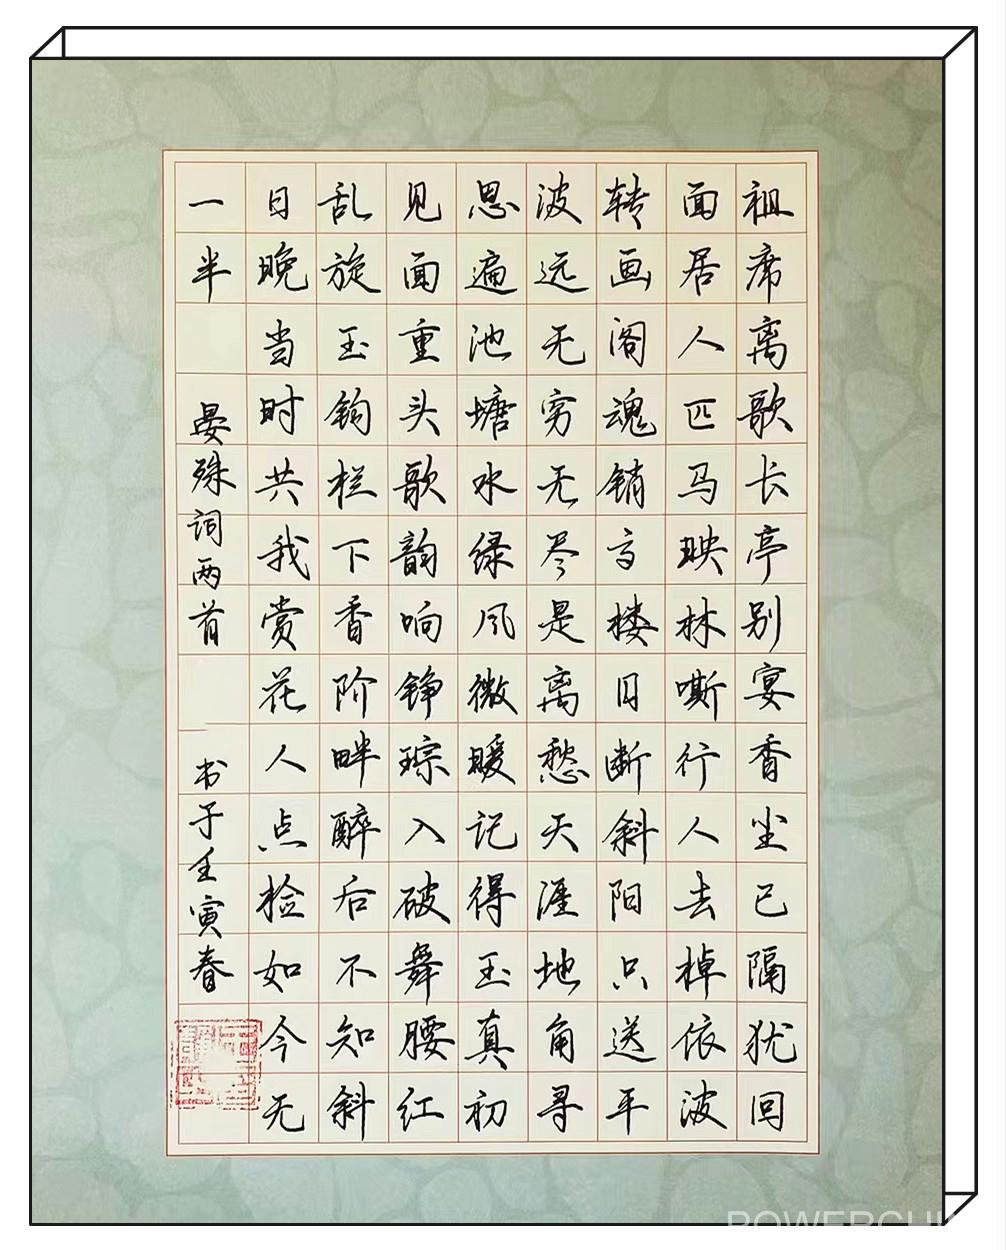 祖席离歌长亭别宴香尘已隔犹回
面居人匹马映林嘶行人去棹依波
转画阁魂销高楼目断斜阳只送平
波远无穷无尽是离愁天涯地角寻
思遍池塘水绿风微暖记得玉真初
见面重头歌韵响铮琮入破舞腰红
乱旋玉钩栏下香阶畔醉后不知斜
日晚当时共我赏花人点检如今无
一半
晏殊词两首
书于壬寅春
POWERCHI